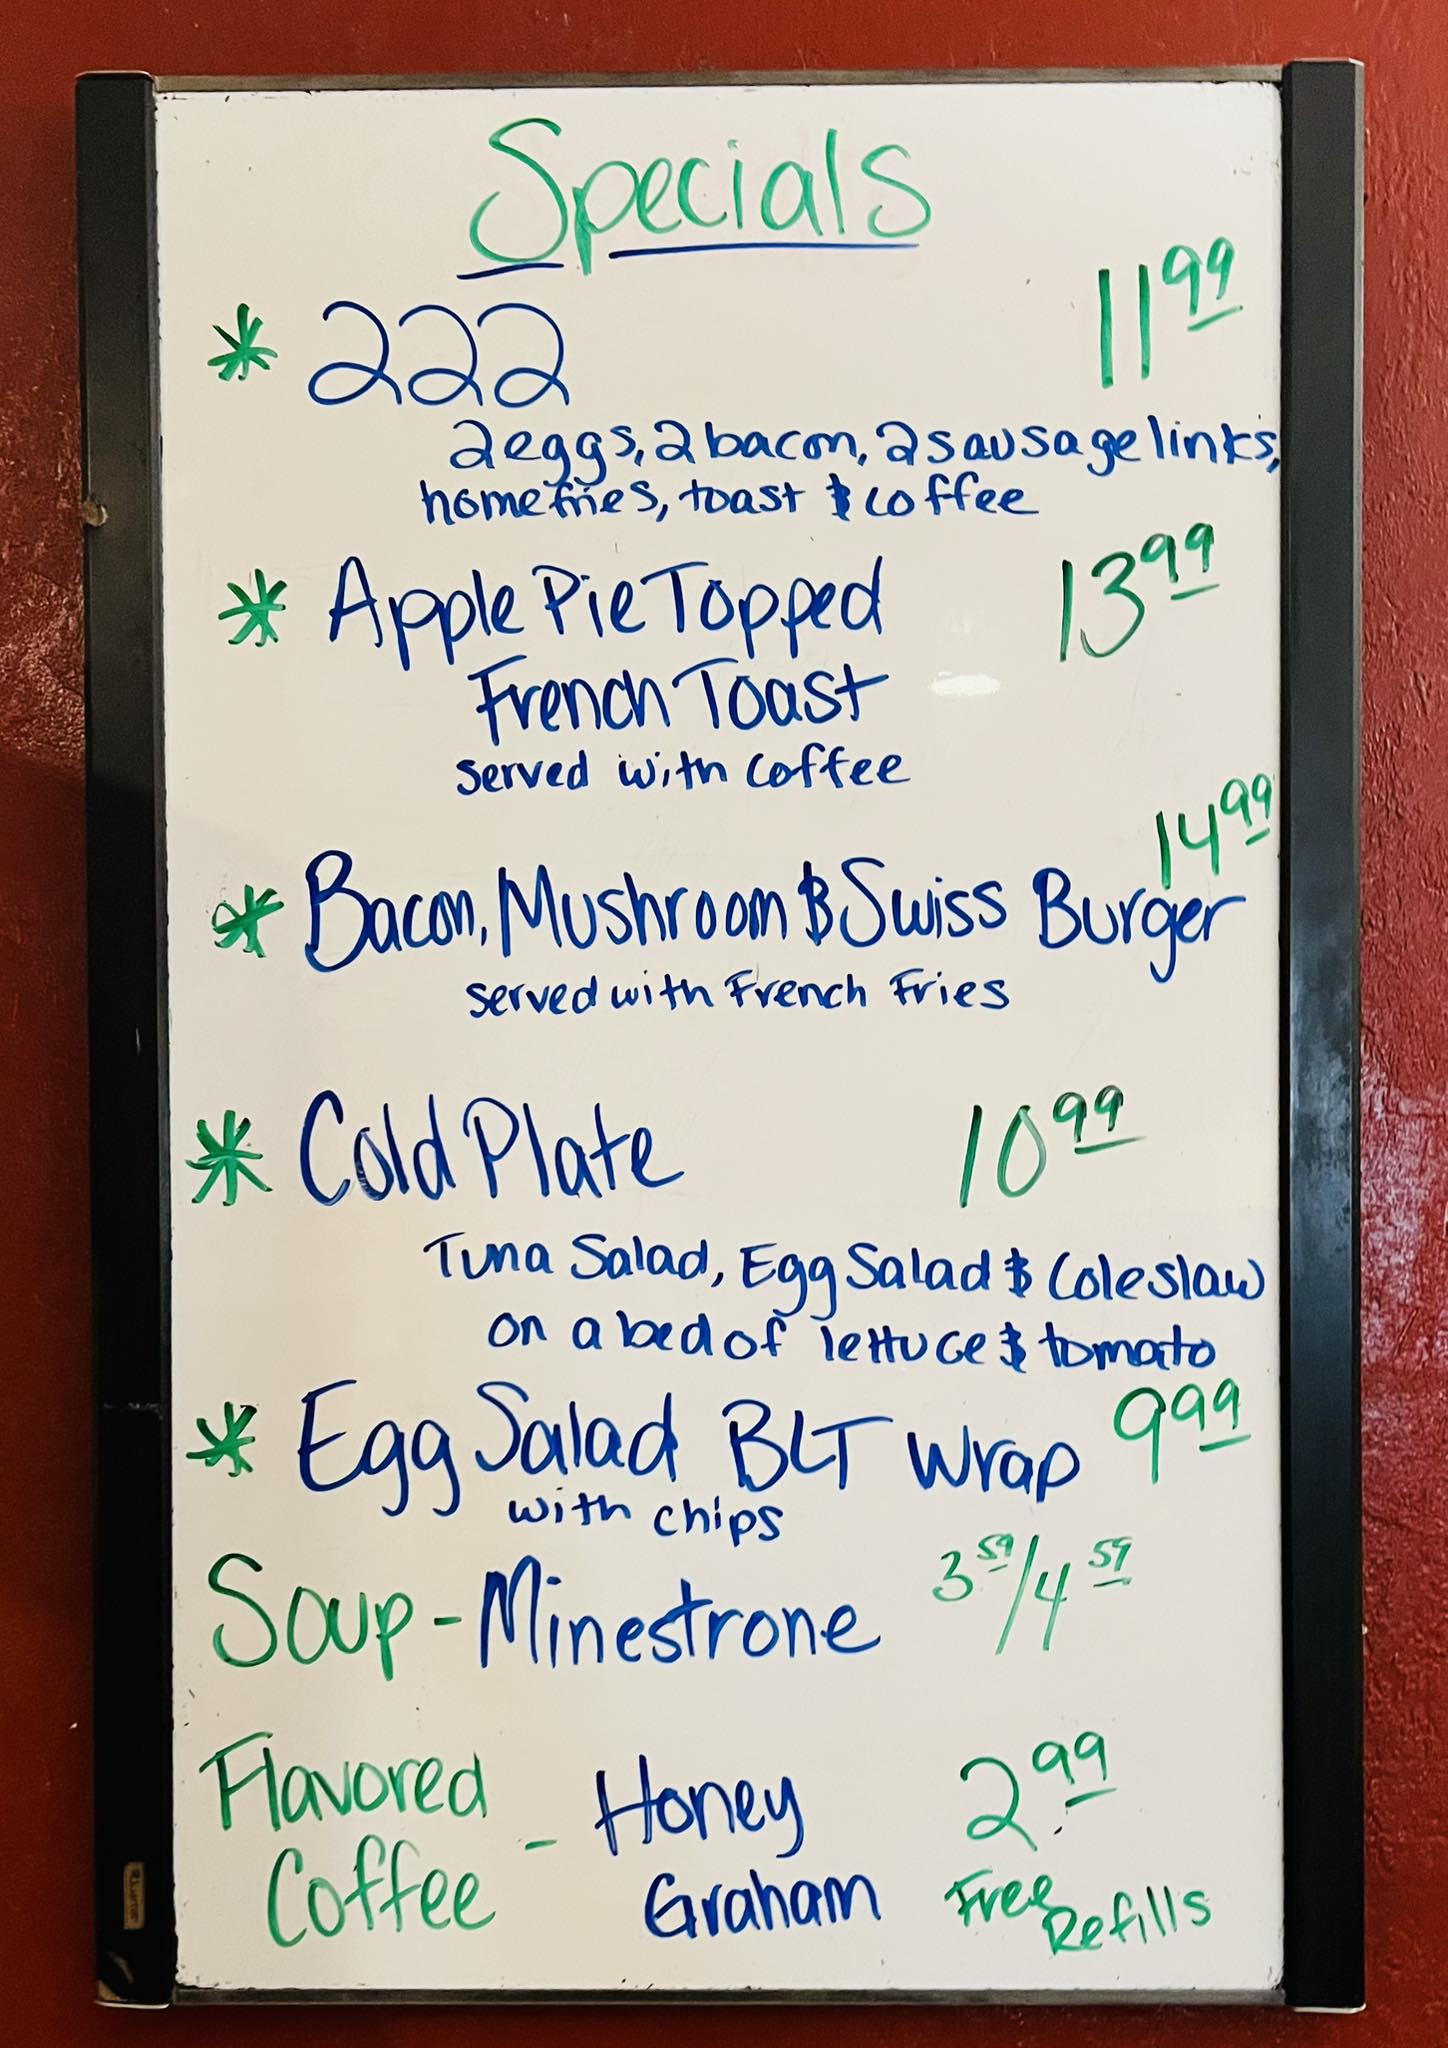 Specials
* 222 11.99
2 eggs, 2 bacon, 2 sausage links,
homefries, toast & coffee
* Apple Pie Topped 13.99
French Toast
served with coffee
14.99
* Bacon, Mushroom & Swiss Burger
served with French Fries
* Cold Plate 10.99
Tuna Salad, Egg Salad & Coleslaw
on a bed of lettuce & tomato
* Egg Salad BLT Wrap 9.99
with chips
Soup - Minestrone 3.59/4.59
Flavored Coffee - Honey Graham 2.99
Free Refills